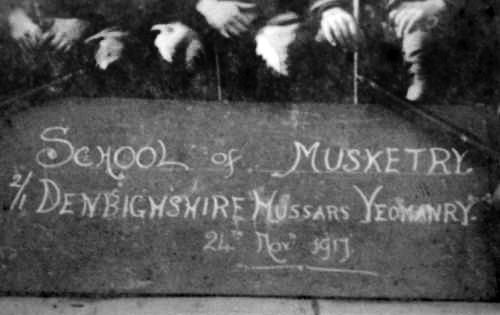 School of Musketry.
2/1 Denbighshire Hussars Yeomanry.
24th Nov 1917.